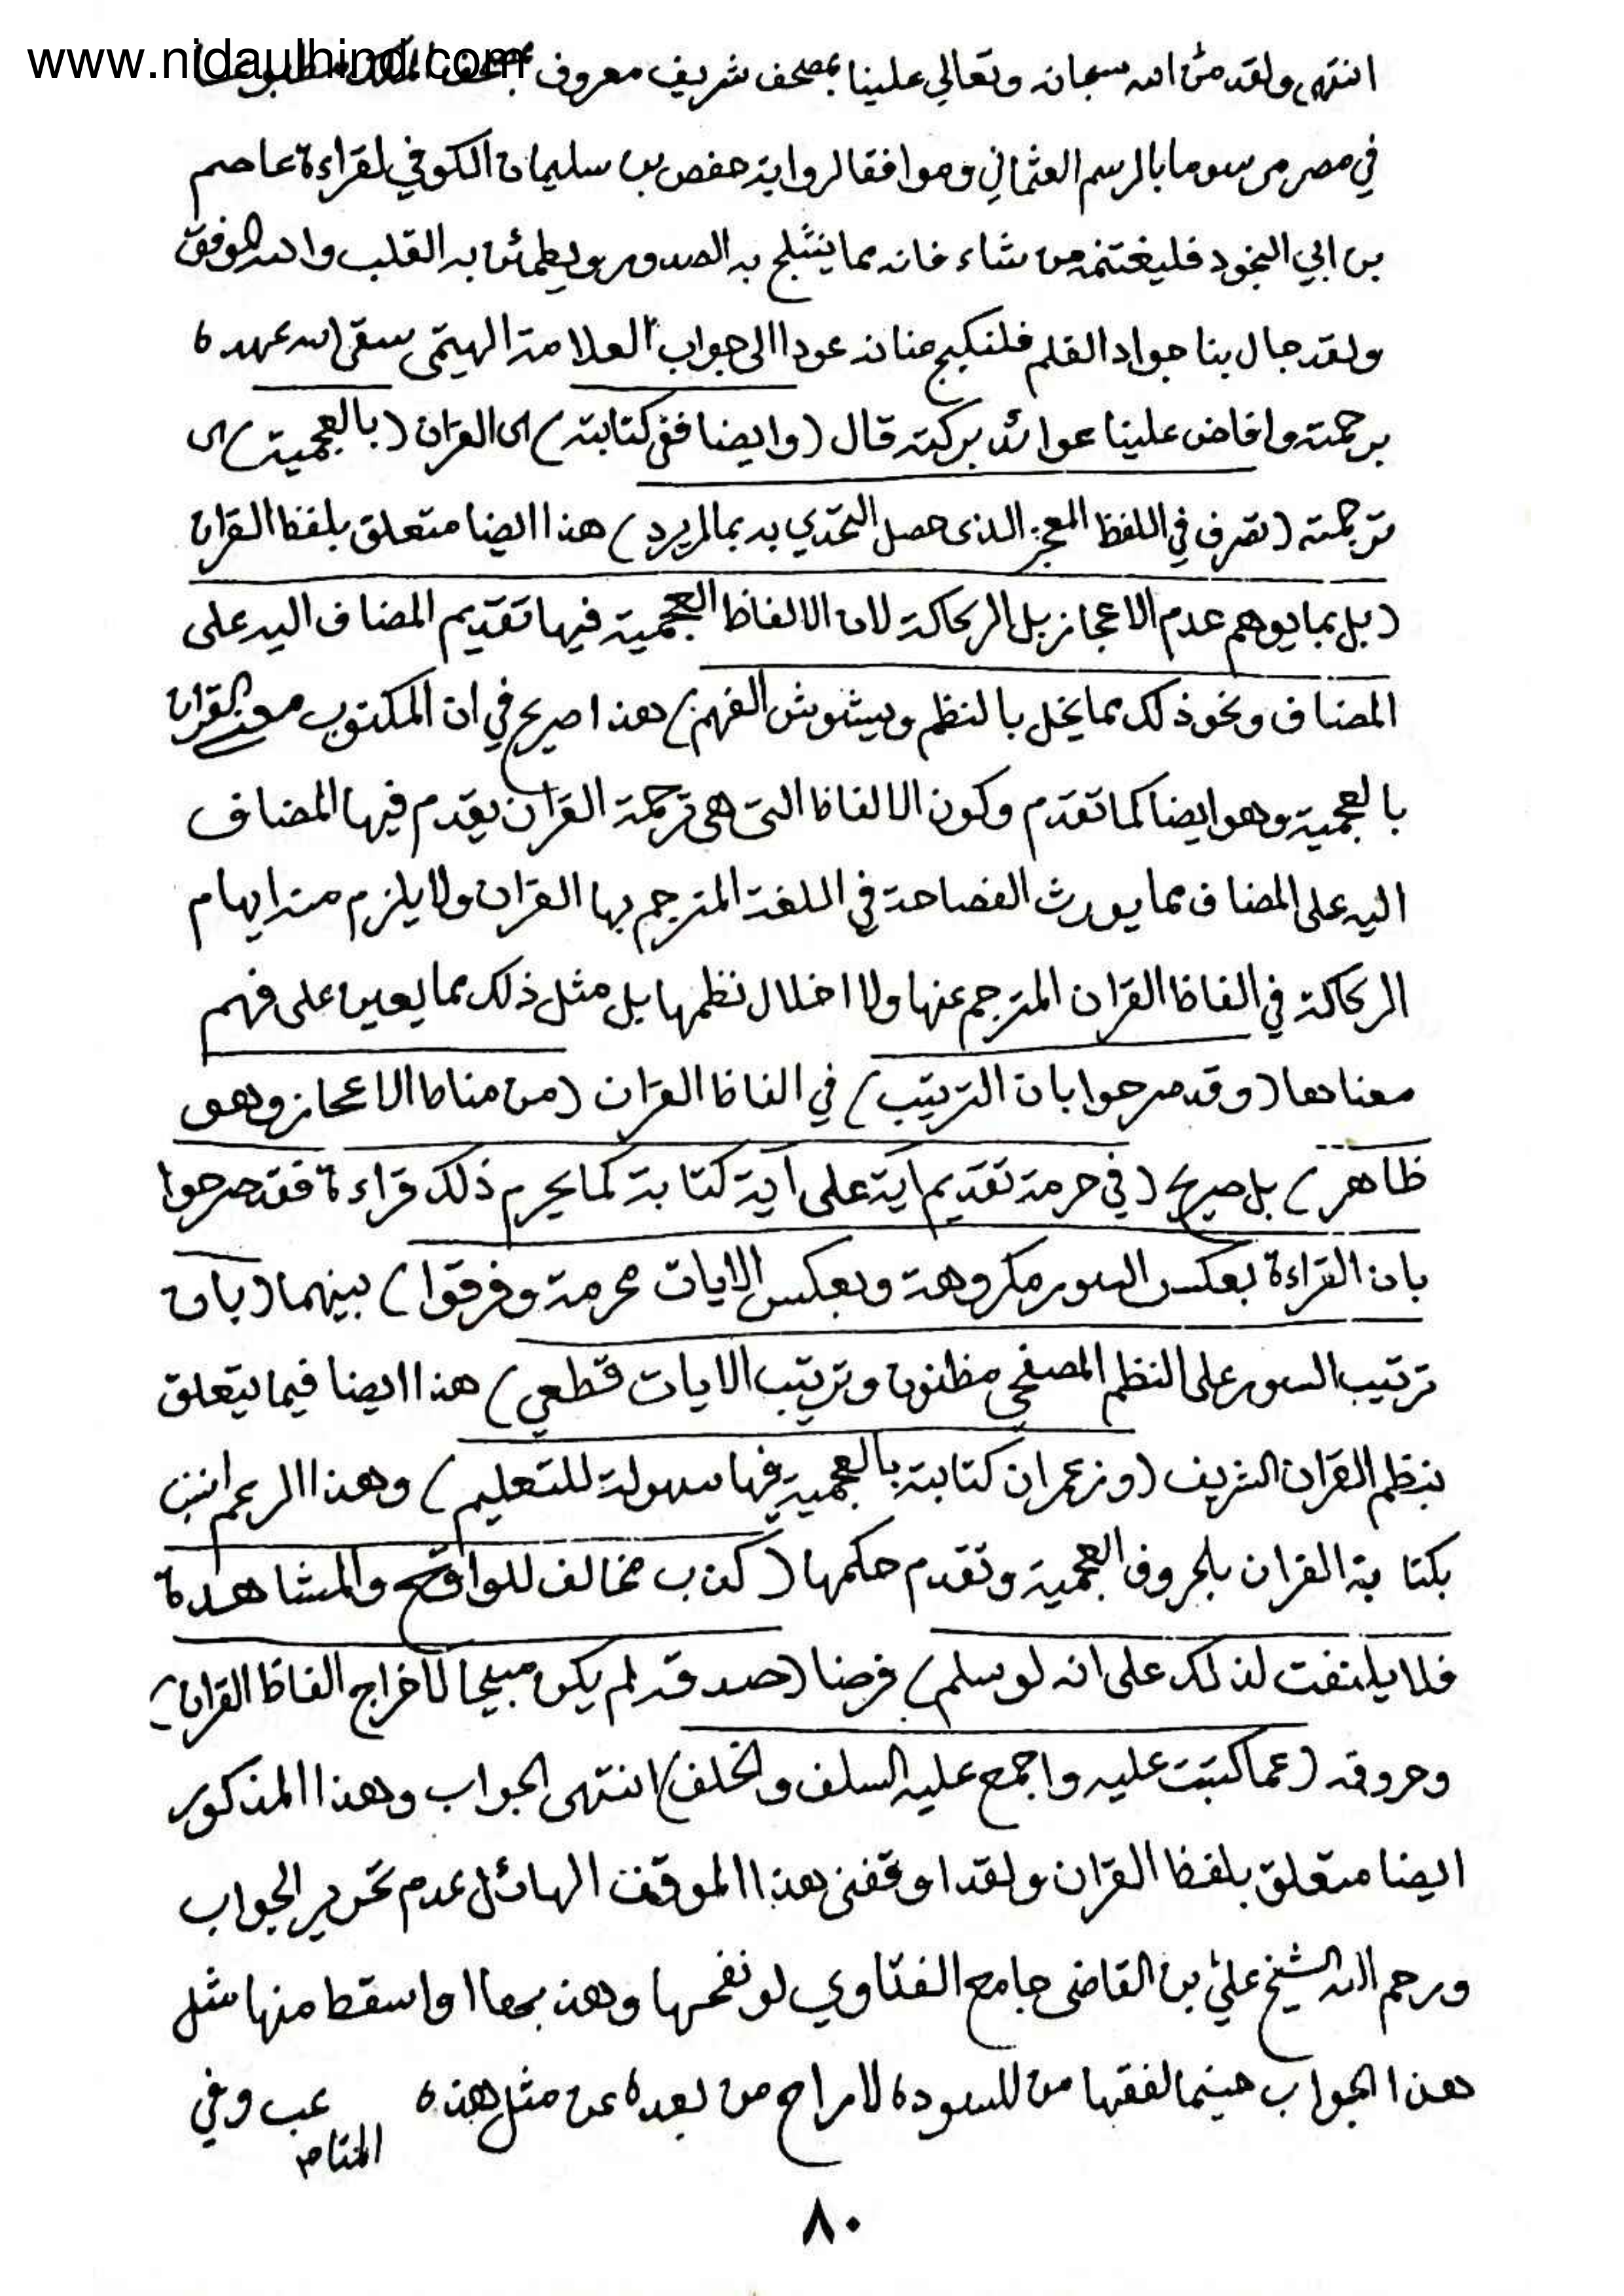 www.nidaulhind.com
انتهى ولقد منّ الله سبحانه وتعالي علينا بمصحف شريف معروف بمصحف الملك مطبوعا
في مصر مرسوما بالرسم العثماني وموافقا لرواية حفص بن سليمان الكوفي لقراءة عاصم
بن ابي النجود فليغتنمه من شاء فانه مما ينثلج به الصدور ويطمئن به القلب والله الموفق
ولقد جال بنا جواد القلم فلنكبح عنانه عودا الى جواب العلامة الهيتمى سقى الله عهده
برحمته وافاض علينا عوائد بركته قال (وايضا ففى كتابته) اى القرآن (بالعجمية) اى
ترجمته (تصرف في اللفظ المعجز الذى حصل التحدّي به بما لم يرد) هذا ايضا متعلق بلفظ القران
(بل بما يوهم عدم الاعجاز بل الركاكة لان الالفاظ العجمية فيها تقديم المضاف اليه على
المضاف ونحو ذلك مما يخل بالنظم ويشوش الفهم) هذا صريح في ان المكتوب معنى القران
بالعجمية وهو ايضا كما تقدم وكون الالفاظ التى هى ترجمة القرآن يقدم فيها المضاف
اليه على المضاف مما يورث الفصاحة في اللغة المترجم بها القرآن ولا يلزم منه ايهام
الركاكة في الفاظ القرآن المترجم عنها ولا اخلال نظمها بل مثل ذلك مما يعين على فهم
معناها (وقد صرحوا بان الترتيب) في الفاظ القرآن (من مناط الاعجاز وهو
ظاهر) بل صريح (في حرمة تقديم آية على آية كتابة كما يحرم ذلك قراءة فقد صرحوا
بان القراءة بعكس السور مكروهة وبعكس الايات محرمة وفرقوا) بينهما (بان
ترتيب السور على النظم المصفحي مظنون وترتيب الايات قطعي) هذا ايضا فيما يتعلق
بنظم القرآن الشريف (وزعم ان كتابته بالعجمية فيها سهولة للتعليم) وهذا الزعم انسب
بكتابة القران بالحروف العجمية وتقدم حكمها (كذب مخالف للواقع والمشاهدة
فلا يلتفت لذلك على انه لو سلم) فرضا (صدقه لم يكن مبيحا لاخراج الفاظ القران)
وحروفه (عما كتبت عليه واجمع عليه السلف والخلف) انتهى الجواب وهذا المذكور
ايضا متعلق بلفظ القرآن ولقد اوقفنى هذا الموقف الهائل عدم تحرير الجواب
ورحم الله الشيخ علي بن القاضى جامع الفتاوي لو نقحها وهذبها او اسقط منها مثل
هذا الجواب حينما لفقها من المسودة لاراح من بعده عن مثل هذه
عب وفي
المتاعب
٨٠